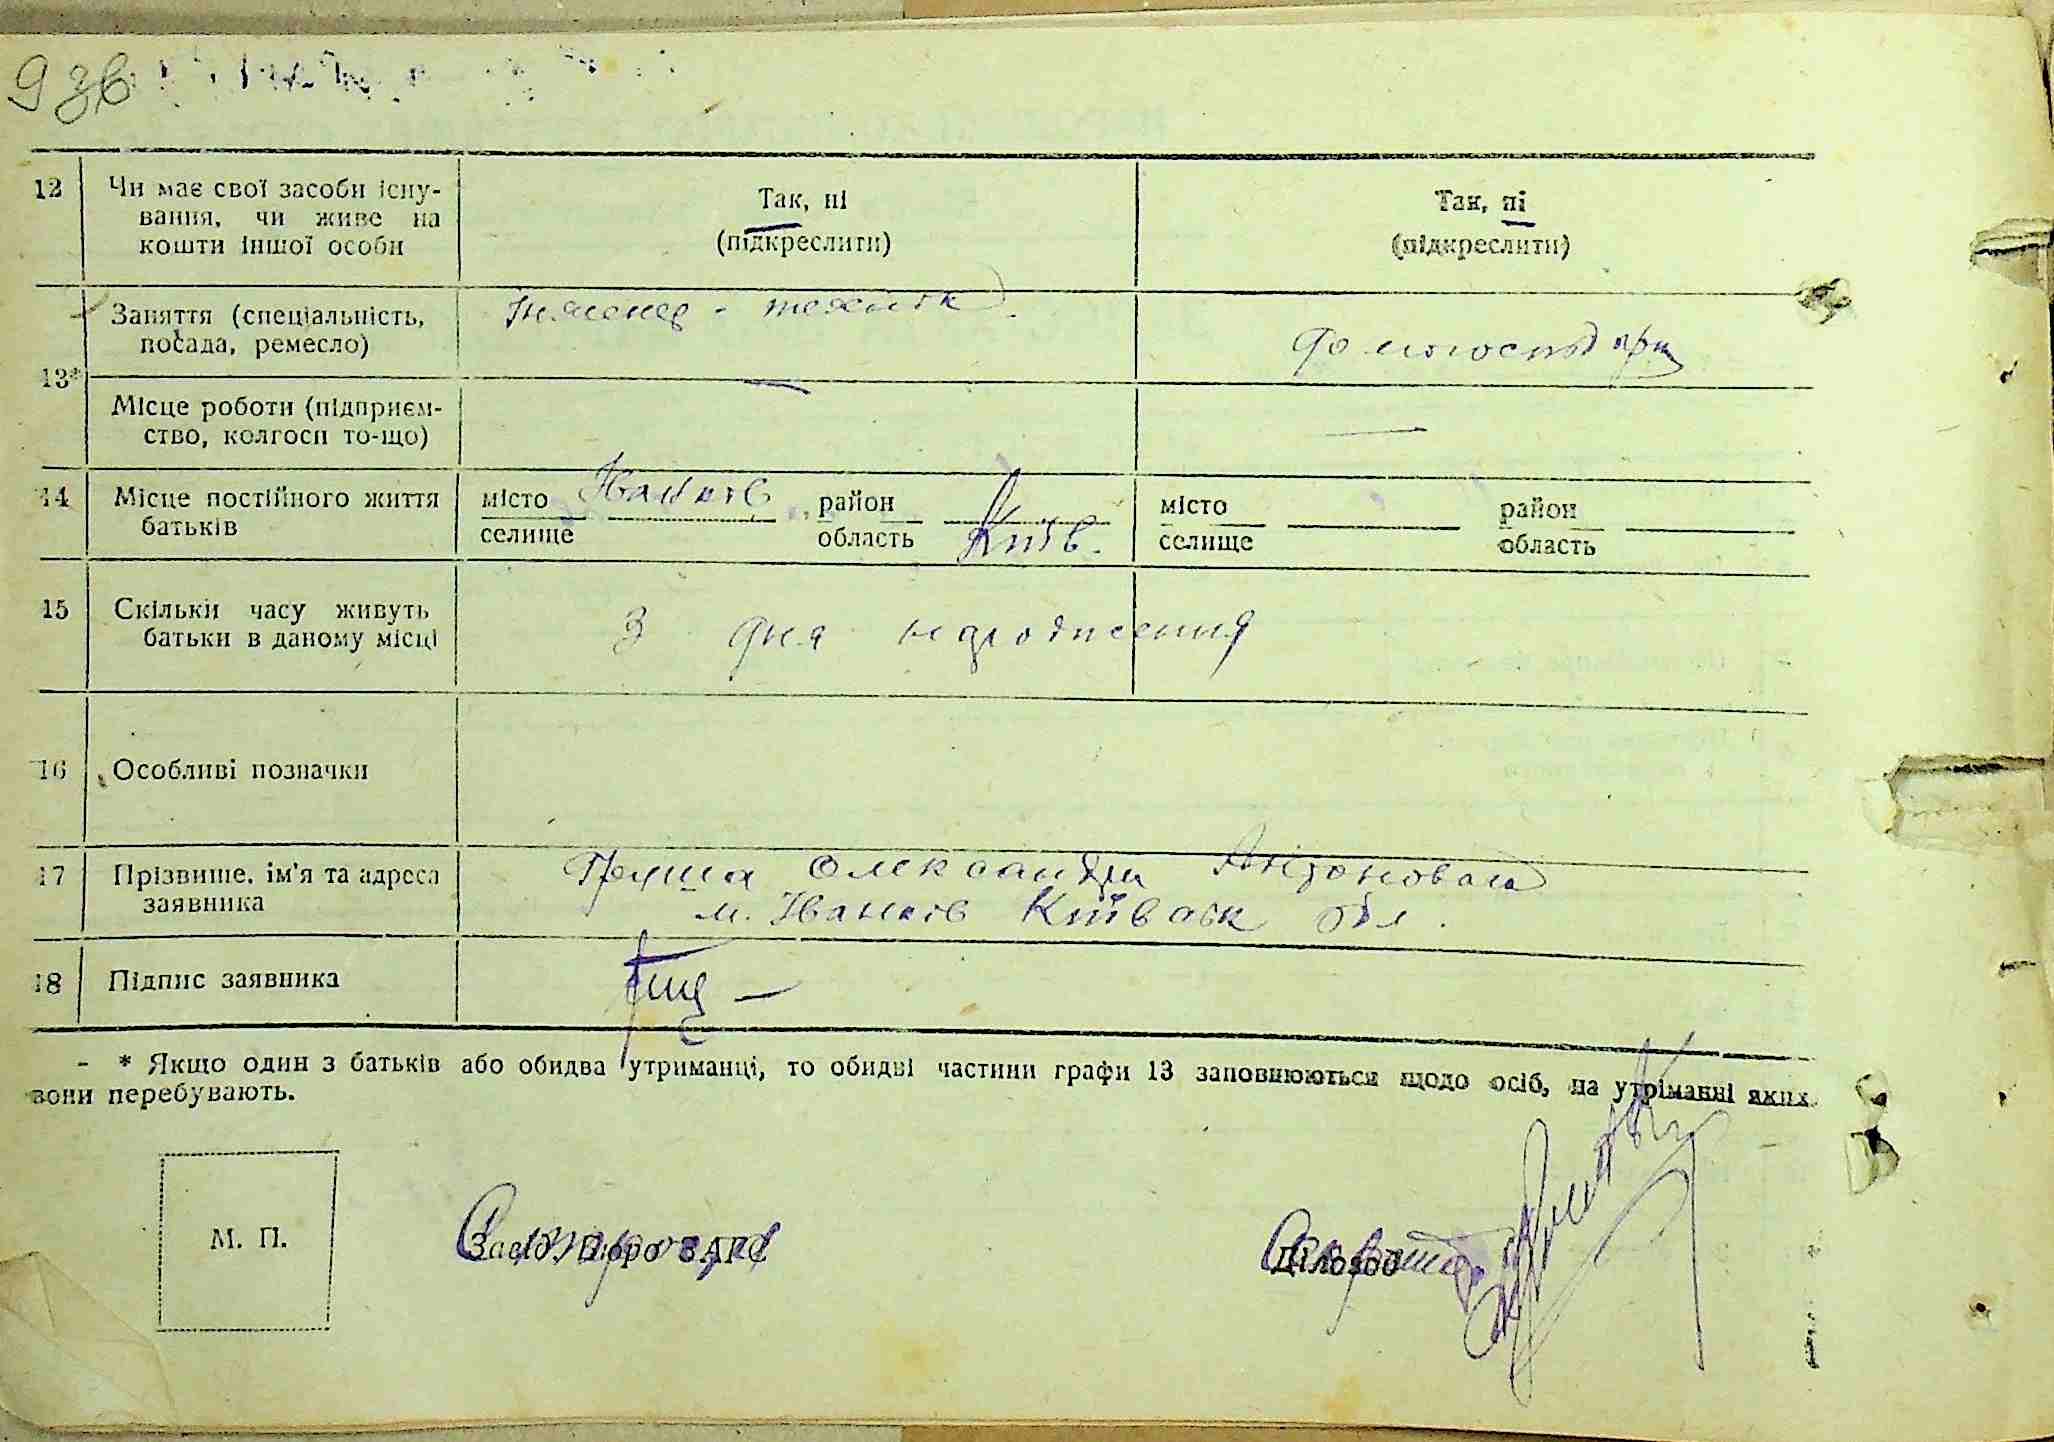 93в
12 Чи має свої засоби існу- Так, ні Так, ні
вання, чи живе на (підкреслити) (підкреслити)
кошти іншої особи
Заняття (спеціальність, Інженер - технік
посада, ремесло) домогосподарк
13*
Місце роботи (підприєм- —
ство, колгосп то-що)
14 Місце постійного життя місто Іванків район місто район
батьків селище область Київ. селище область
15 Скільки часу живуть З дня народження
батьки в даному місці
16 Особливі позначки
17 Прізвище, ім'я та адреса Груша Олександри Антоновна
заявника м. Іванків Київськ обл.
18 Підпис заявника
- * Якщо один з батьків або обидва утриманці, то обидві частини графи 13 заповнюються щодо осіб, на утріманні яких
вони перебувають.
М. П. Зав. Бюро ЗАГС Діловод